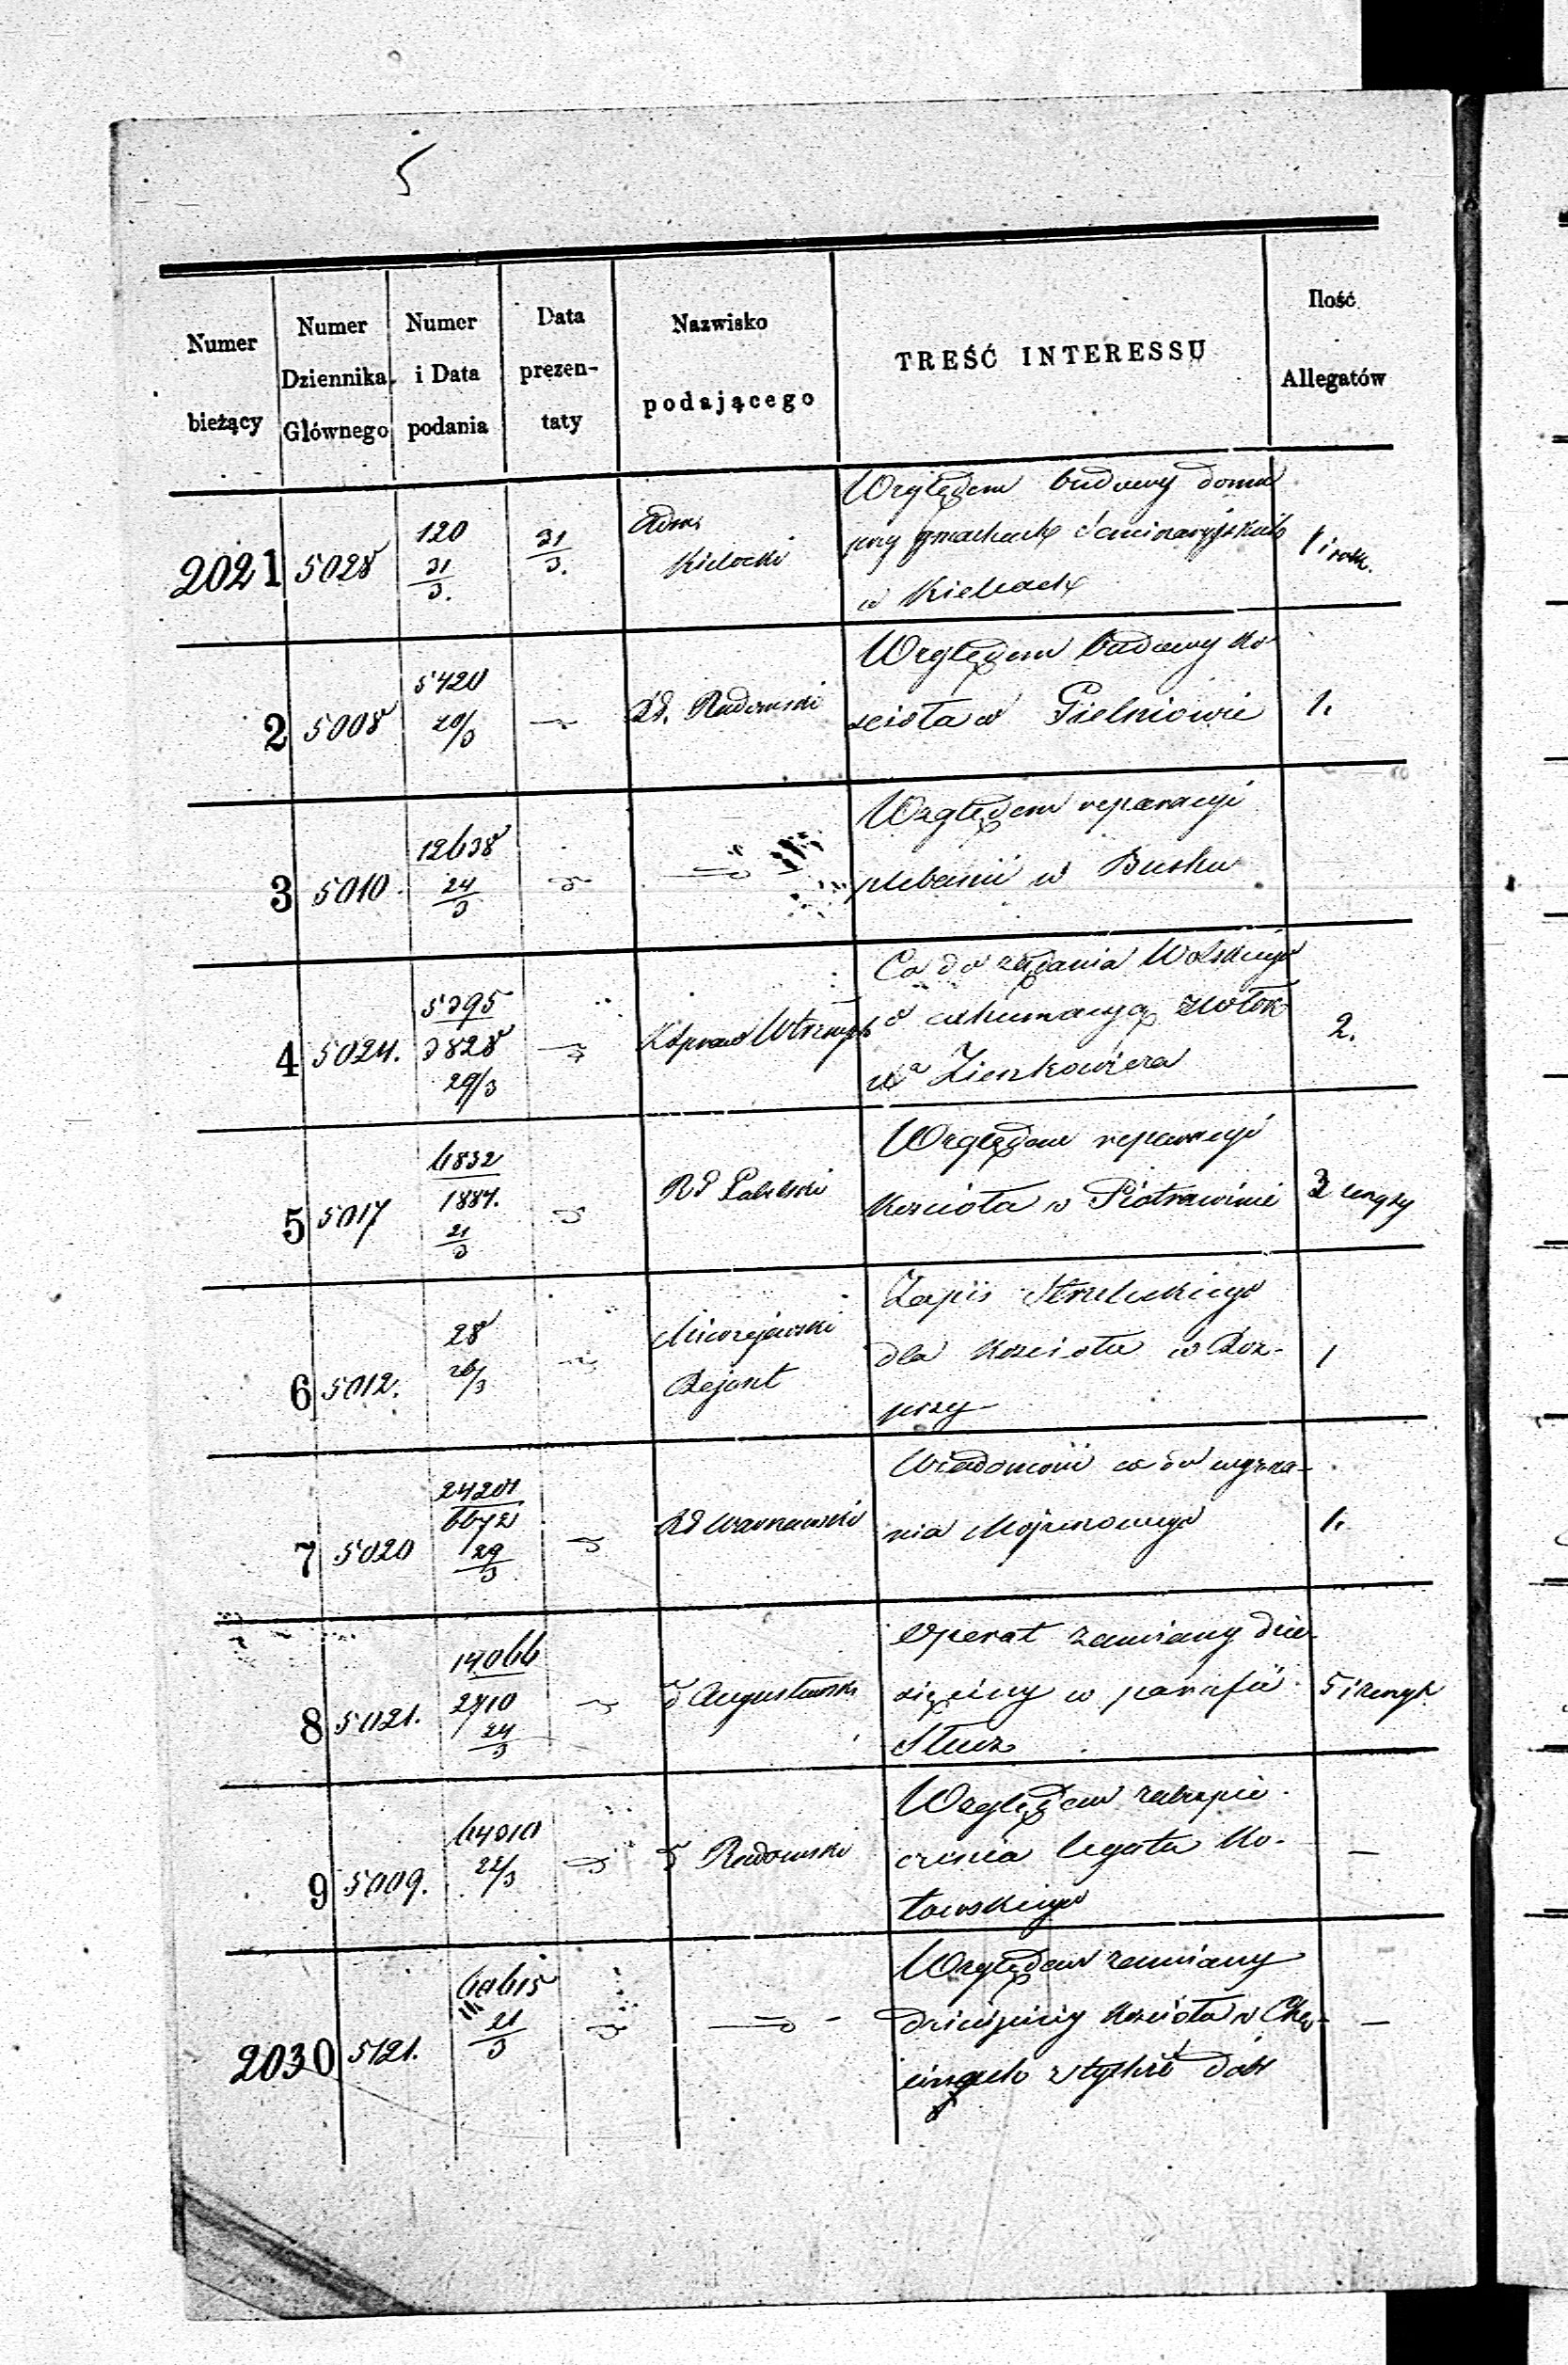 5
Numer bieżący
Numer Dziennika Głównego
Numer i Data podania
Data prezentaty
Nazwisko podającego
TREŚĆ INTERESSU
Ilość Allegatów
2021 5028 120 31/3. 31/3. Adm. Kielecki
Względem budowy domu
przy gmachach Seminaryjskich
w Kielcach
1 i
2 5008 5420 20/3 Rd. Radomski
Względem budowy Ko-
ścioła w Gielniowie
1.
3 5010. 12638 24/3
Względem reparacyi
plebanii w Busku
4 5024. 5395 3828 29/3
Co do żądania Wolskiego
o exhumacyą zwłok
Zienkowicza
2.
5 5017 6832 1884. 21/3 Rd Lubelski
Względem reparacyi
Kościoła w Piotrawinie
3
6 5012. 28 26/3 Rejent
Zapis
dla Kościoła w Roz-
przy
1
7 5020 24201 6672 29/3 Rd Warszawski
Wiadomość co do wyzna-
nia Mojżeszowego
1.
8 5021. 14066 2410 24/3 Augustowski
Operat zamiany dzie-
sięciny w parafii
Słucz
5 i
9 5009. 64010 22/3 Radomski
Względem zabezpie-
czenia legatu Ko-
towskiego
—
2030 5121. 21/3
Względem zamiany
dziesięciny Kościoła w Chę-
cinach z tychże dóbr
—